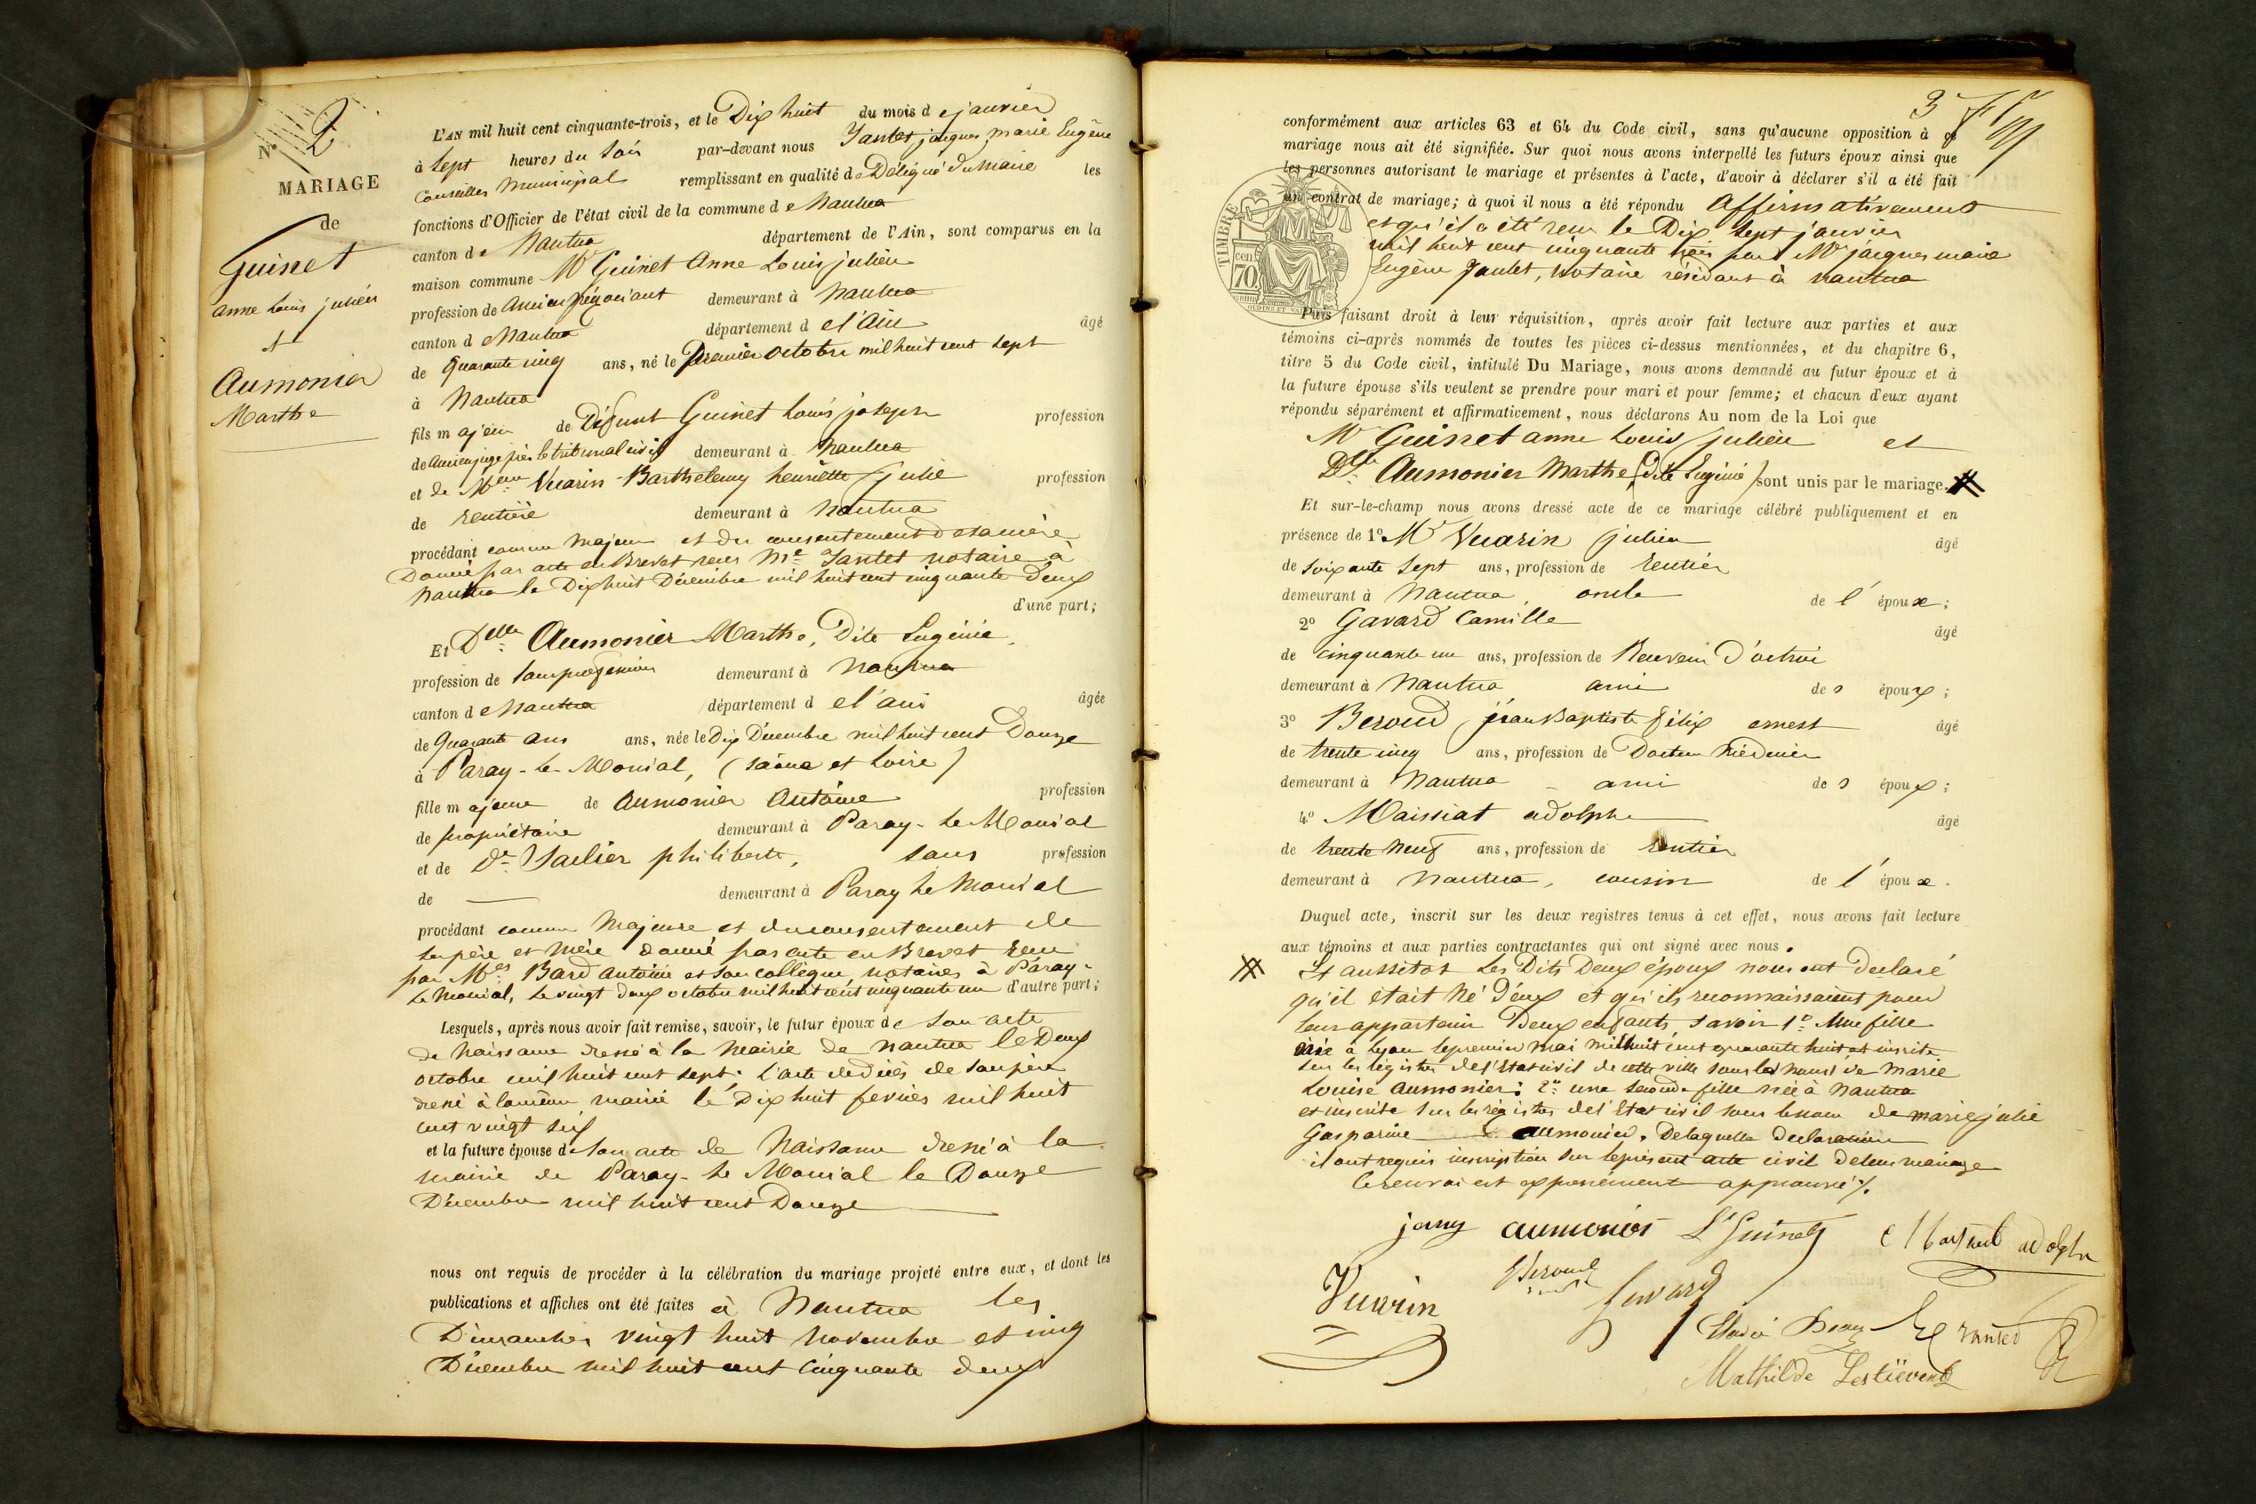 N° 2
MARIAGE
de
Guinet
anne Louis julien
et
Aumonier
Marthe
L'AN mil huit cent cinquante-trois, et le Dix huit du mois de janvier
à Sept heures du Soir par-devant nous Jantet jacques marie Eugène
Conseiller Municipal remplissant en qualité de Délégué du Maire les
fonctions d'Officier de l'état civil de la commune de Nantua
canton de Nantua département de l'Ain, sont comparus en la
maison commune Mr Guinet Anne Louis julien
profession de Ancien Négociant demeurant à Nantua
canton de Nantua département de l'Ain âgé
de Quarante cinq ans, né le Premier octobre mil huit cent sept
à Nantua
fils majeur de Défunt Guinet Louis joseph profession
de Ancien juge près le tribunal civil demeurant à Nantua
et de Vuarin-Barthelemy henriette julie profession
de Rentière demeurant à Nantua
procédant comme Majeur et du consentement de sa mère
Donné par acte en Brevet reçu Me Jantet notaire à
Nantua le Dix huit Décembre mil huit cent cinquante Deux
d'une part;
Et Delle Aumonier Marthe, Dite Eugénie
profession de Sans profession demeurant à Nantua
canton de Nantua département de l'ain âgée
de Quarante ans ans, née le Dix Décembre mil huit cent Douze
à Paray-le-Monial, (Saône et Loire)
fille majeure de Aumonier Antoine profession
de propriétaire demeurant à Paray-le Monial
et de De philiberte, sans profession
de — demeurant à Paray le Monial
procédant comme Majeure et du consentement de
ses père et mère donné par acte en Brevet reçu
par Mes Bard Antoine et son collègue, notaires à Paray-
le Monial, le vingt deux octobre mil huit cent cinquante un d'autre part;
Lesquels, après nous avoir fait remise, savoir, le futur époux de Son acte
de Naissance dressé à la Mairie de Nantua le Deux
octobre mil huit cent sept. L'acte de décès de son père
dressé à la même mairie le Dix huit fevrier mil huit
cent vingt six
et la future épouse de Son acte de Naissance dressé à la
mairie de Paray-le Monial le Douze
Décembre mil huit cent Douze
nous ont requis de procéder à la célébration du mariage projeté entre eux, et dont les
publications et affiches ont été faites à Nantua les
Dimanches vingt huit Novembre et cinq
Décembre mil huit cent Cinquante deux
3
conformément aux articles 63 et 64 du Code civil, sans qu'aucune opposition à ce
mariage nous ait été signifiée. Sur quoi nous avons interpellé les futurs époux ainsi que
les personnes autorisant le mariage et présentes à l'acte, d'avoir à déclarer s'il a été fait
un contrat de mariage; à quoi il nous a été répondu Affirmativement
et qu'il a été reçu le Dix Sept janvier
mil huit cent cinquante trois par Me jacques marie
Eugène Jantet, Notaire résidant à Nantua
TIMBRE
70
Puis faisant droit à leur réquisition, après avoir fait lecture aux parties et aux
témoins ci-après nommés de toutes les pièces ci-dessus mentionnées, et du chapitre 6,
titre 5 du Code civil, intitulé Du Mariage, nous avons demandé au futur époux et à
la future épouse s'ils veulent se prendre pour mari et pour femme; et chacun d'eux ayant
répondu séparément et affirmativement, nous déclarons Au nom de la Loi que
Mr Guinet anne Louis julien et
Dlle Aumonier Marthe (Dite Eugénie) sont unis par le mariage.
Et sur-le-champ nous avons dressé acte de ce mariage célébré publiquement et en
présence de 1° Mr Vuarin julien âgé
de Soixante Sept ans, profession de Rentier
demeurant à Nantua, oncle de l'époux;
2° Gavard Camille âgé
de cinquante un ans, profession de Receveur D'octroi
demeurant à Nantua, ami des époux;
3° Beroud jean Baptiste Félix ernest âgé
de trente cinq ans, profession de Docteur Médecin
demeurant à Nantua - ami des époux;
4° Maissiat adolphe âgé
de trente Neuf ans, profession de Rentier
demeurant à Nantua, cousin de l'époux.
Duquel acte, inscrit sur les deux registres tenus à cet effet, nous avons fait lecture
aux témoins et aux parties contractantes qui ont signé avec nous.
Et aussitot Les Dits Deux époux nous ont declaré
qu'il était Né D'eux et qu'ils reconnaissaient pour
leur appartenir Deux enfants, savoir 1° Une fille
née à Lyon le premier mai mil huit cent quarante huit et inscrite
sur les registres de l'état civil de cette ville sous les noms de Marie
Louise Aumonier: 2° une seconde fille née à Nantua
et inscrite sur les registres de l'Etat civil sous le nom de marie julie
Gasparine aumonier. De laquelle declaration
ils ont requis inscription sur le présent acte civil de leur mariage
Ce renvoi est expressément approuvé %.
jany aumonier Ls Guinet Maissiat adolphe
Vuarin Béroud Gavard
Mathilde